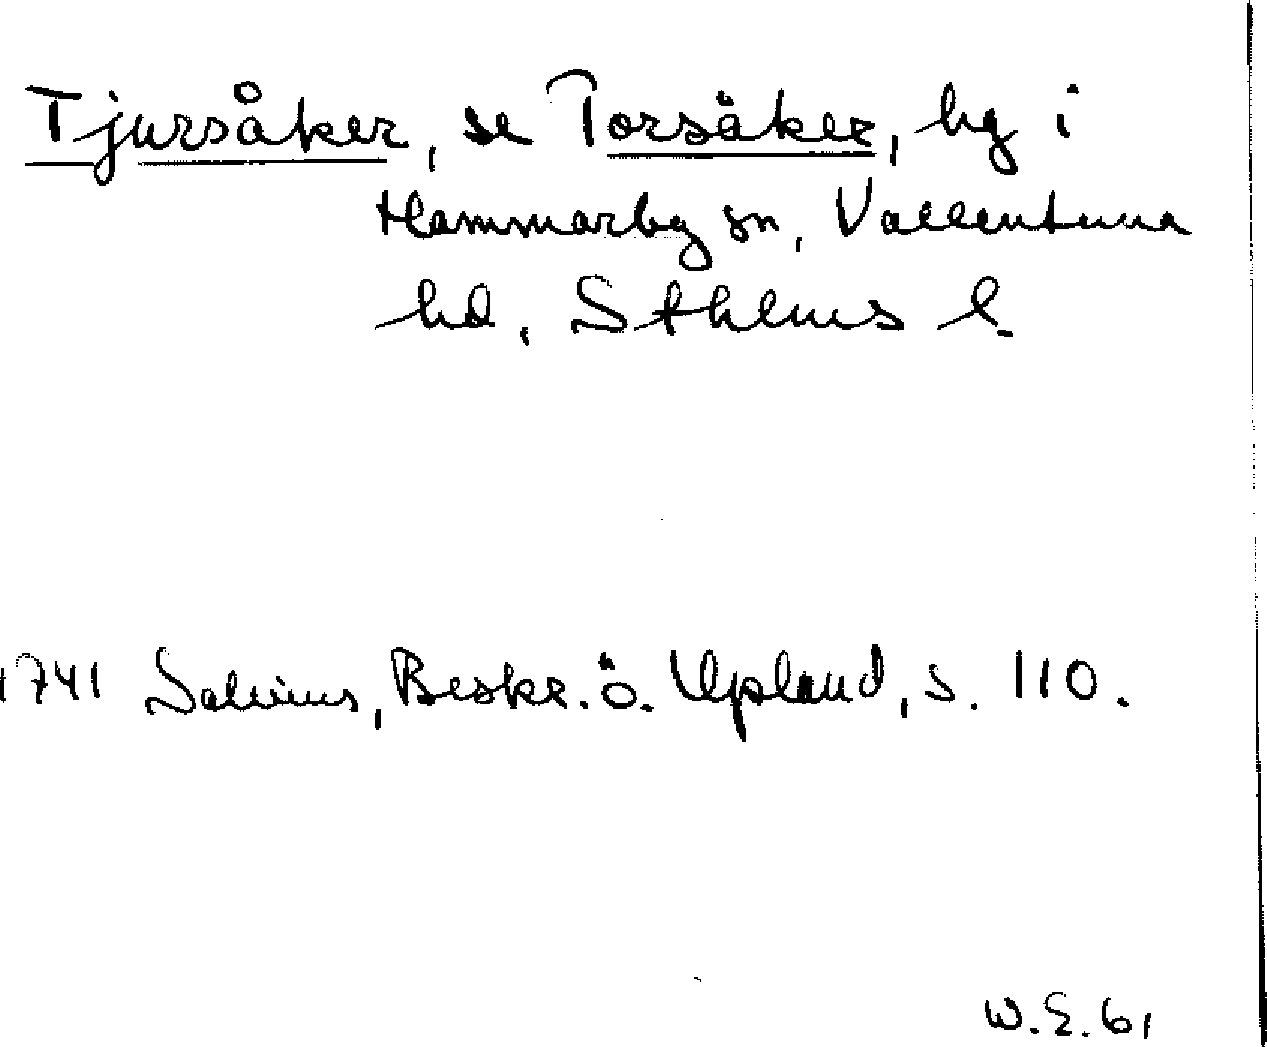 Tjursåker, se Torsåker, by i
Hammarby sn, Vallentuna
hd, Sthlms l.
1741 Salvius, Beskr. ö. Upland, s. 110.
W.E. 61